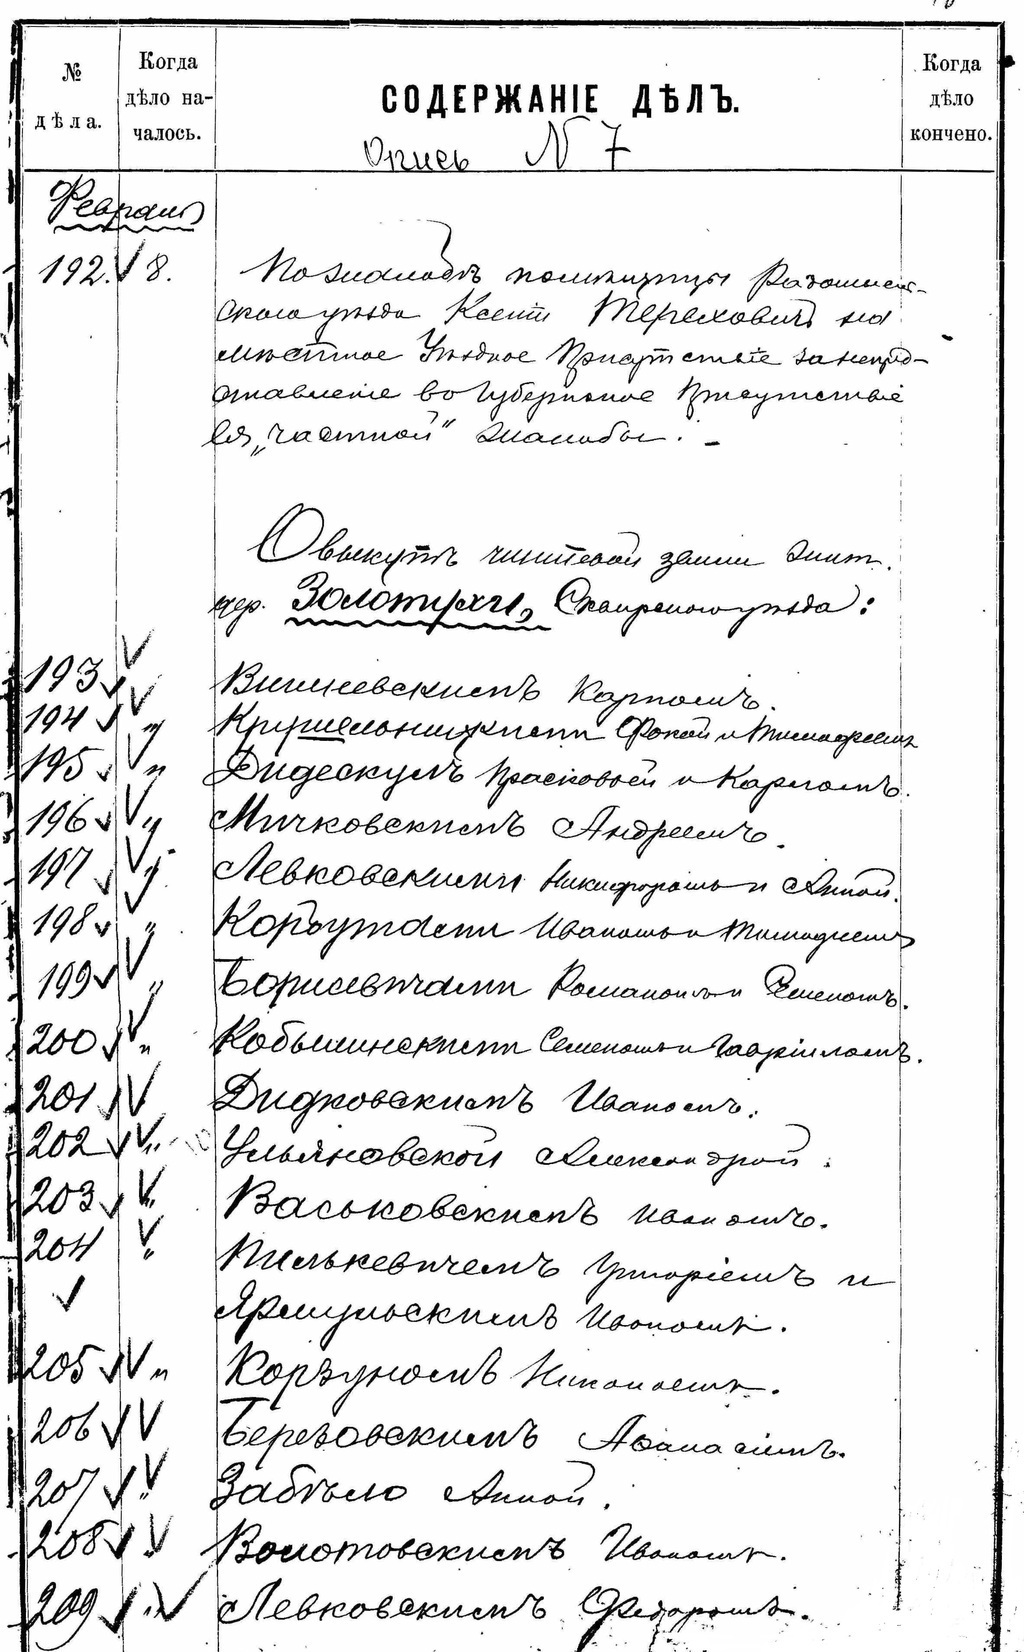 № дѣла.
Когда дѣло началось.
СОДЕРЖАНІЕ ДѢЛЪ.
Когда дѣло кончено.
Опись N 7
Февраль
192. 8. По жалобѣ помѣщицы Радомысль-
скаго уѣзда Ксеніи Тереховичъ на
мѣстное Уѣздное Присутствіе за непред-
ставленіе въ Губернское Присутствіе
ея „частной“ жалобы. -
О выкупѣ чиншевой земли жит.
дер. Золотухи, Сквирскаго уѣзда:
193 Вишневскимъ Карпомъ.
194 " Крушельницкими Фокой и Тимофеемъ
195 " Дидескулъ Прасковьей и Карломъ.
196 " Мичковскимъ Андреемъ.
197 " Левковскими Никифоромъ и Анной.
198 " Корбутами Иваномъ и Тимофеемъ
199 " Борисевичами Романомъ и Семеномъ.
200 " Кобылинскими Семеномъ и Гавріиломъ.
201 Дидковскимъ Иваномъ.
202 " Ульяновской Александрой.
203 " Васьковскимъ Иваномъ.
204 " Пилькевичемъ Григоріемъ и
Ярмульскимъ Иваномъ.
205 " Корзуномъ
206 Березовскимъ Афанасіемъ.
207 " Забѣло Анной.
208 " Волотовскимъ Иваномъ.
209 " Левковскимъ Федоромъ.